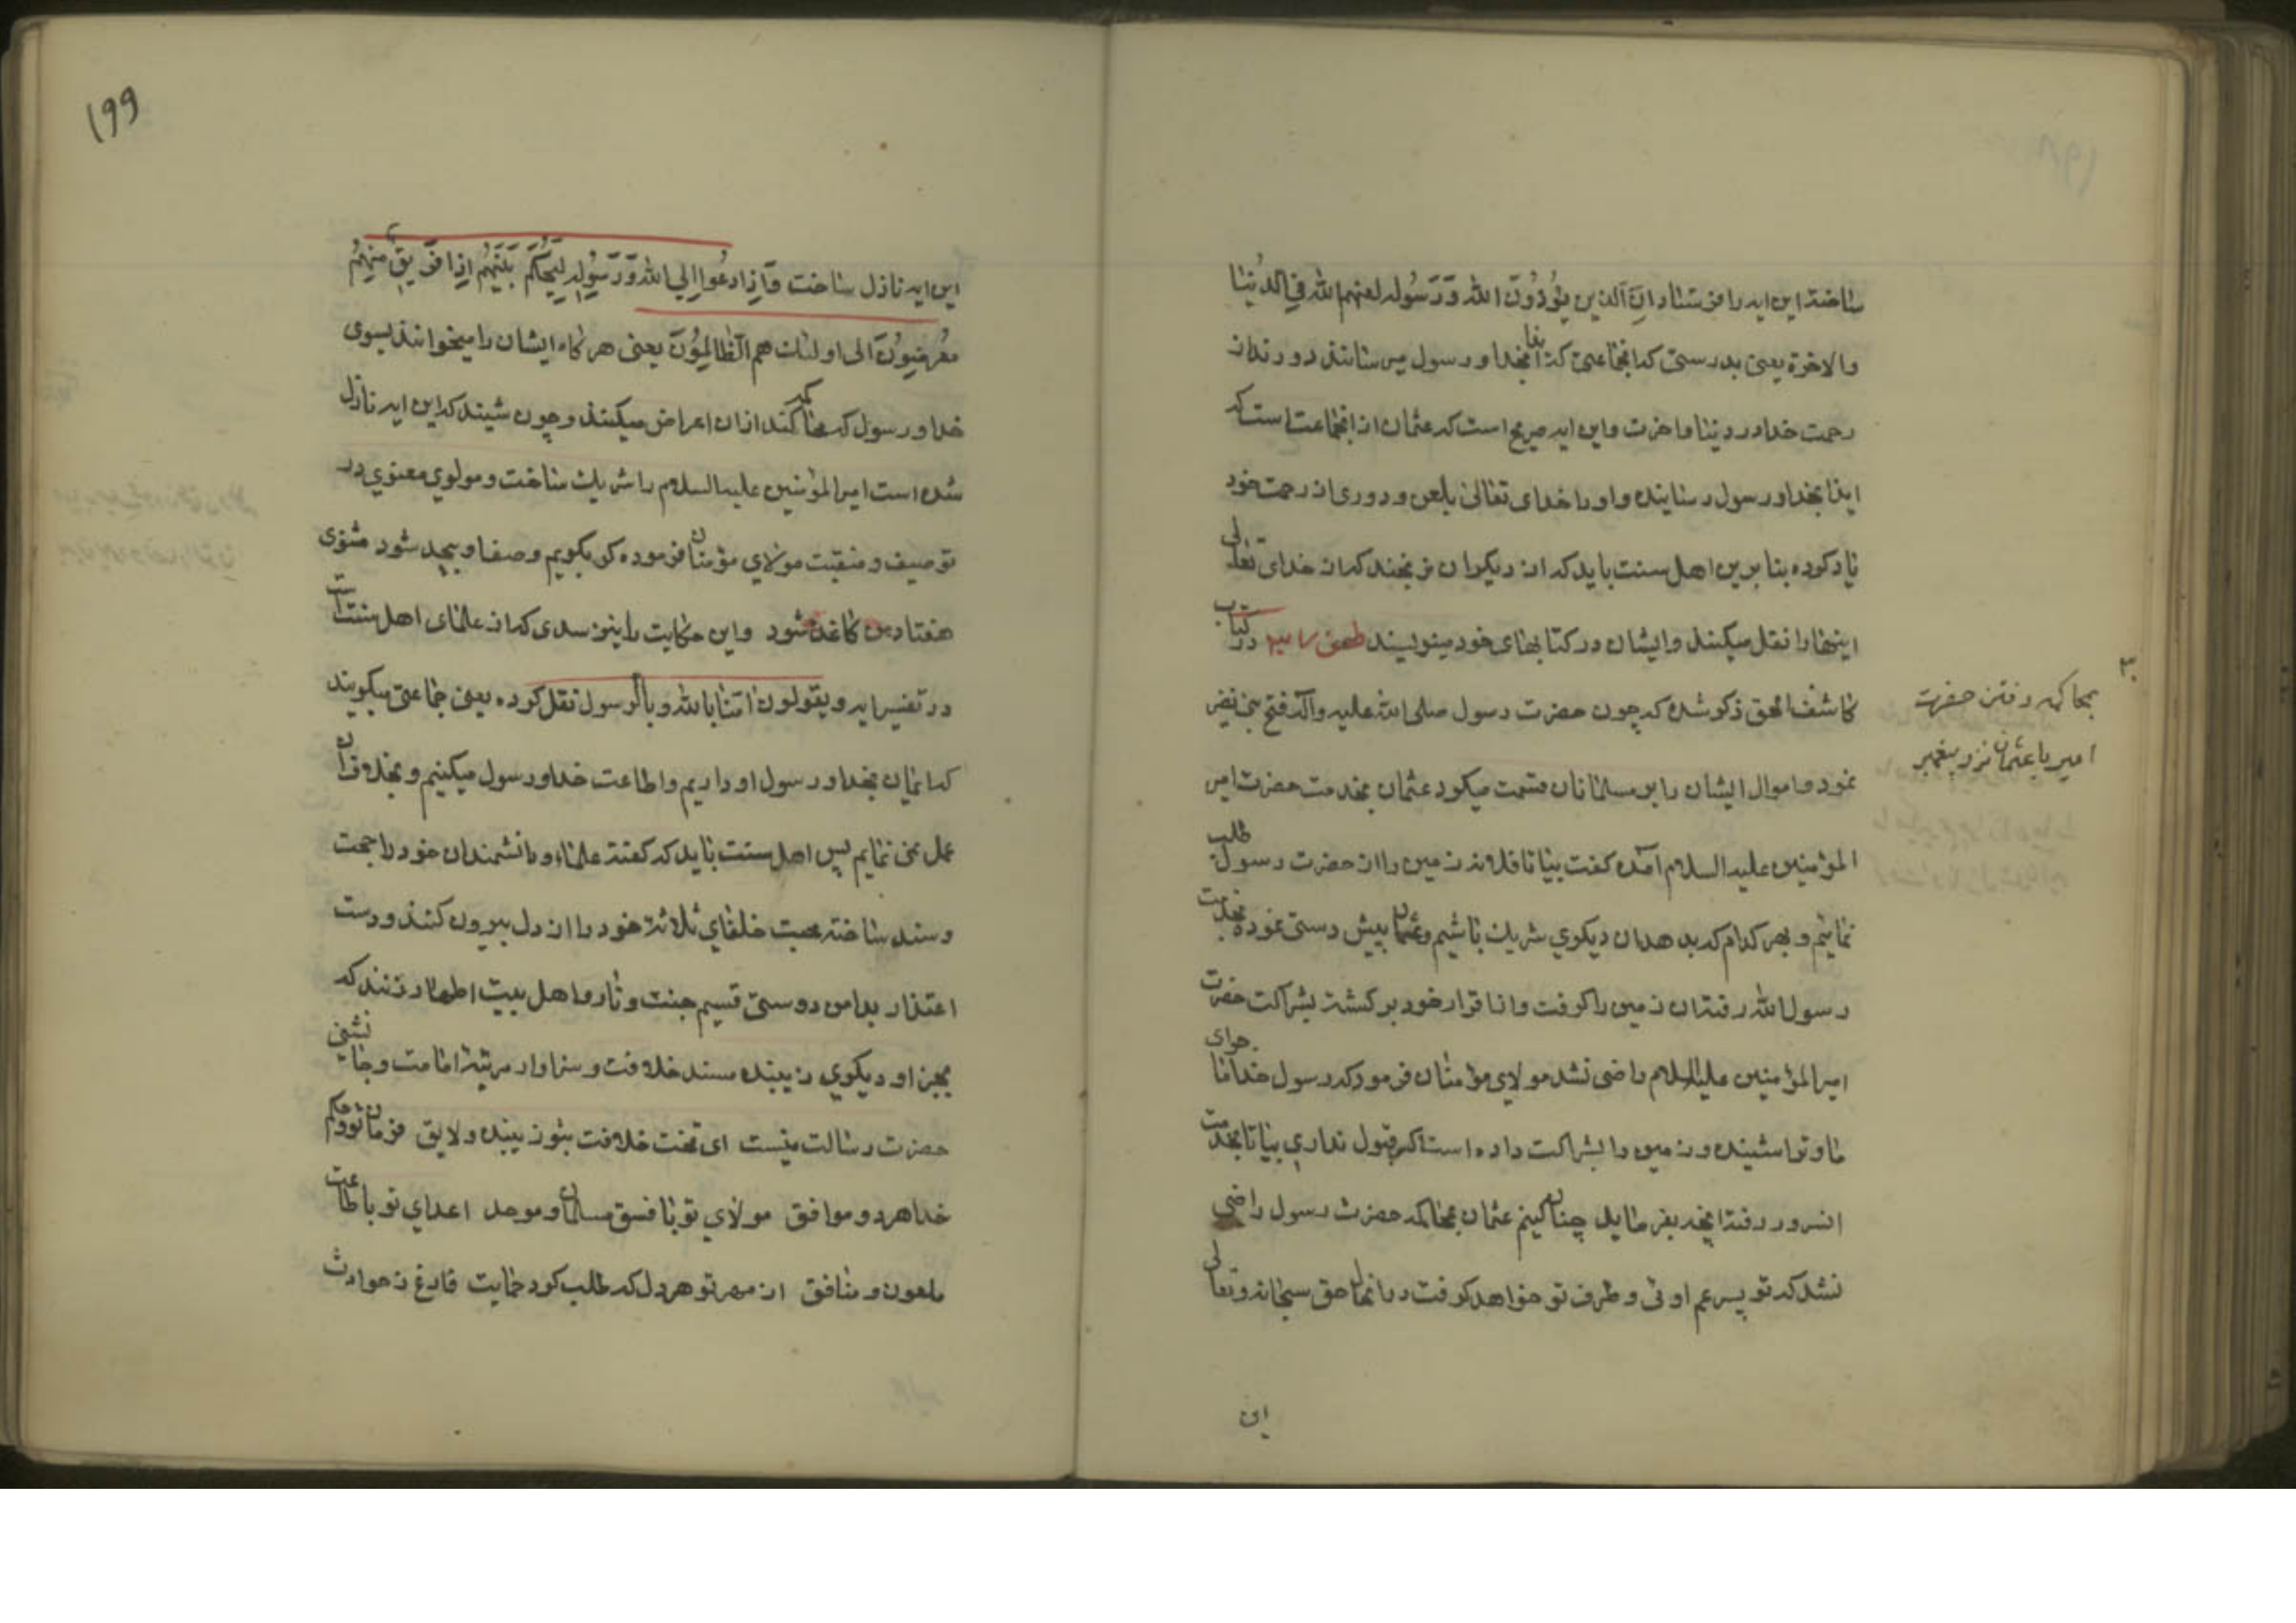 ساخته این ایه را فرستاد ان الذین یؤذون الله و رسوله لعنهم الله فی الدنیا
والاخرة یعنی بدرستی که انجماعتی که ایذا بخدا و رسول میرسانند دورند از
رحمت خدا در دنیا و اخرت و این ایه صریح است که عثمان از انجماعت است که
ایذا بخدا و رسول رسانیده و او را خدای تعالی بلعن و دوری از رحمت خود
یاد کرده بنابرین اهل سنت باید که از دیگران نرنجند که از خدای تعالی
اینها را نقل میکنند و ایشان در کتابهای خود مینویسند طعن در کتاب
کاشف الحق ذکر شده که چون حضرت رسول صلی الله علیه وآله فتح بنی نضیر
نمود و اموال ایشان را بر مسلمانان قسمت میکرد عثمان بخدمت حضرت امیر
المؤمنین علیه السلام آمده گفت بیا تا فلان زمین را از حضرت رسول طلب
نمائیم و بهر کدام که بدهد ان دیگری شریک باشیم و عثمان پیش دستی نموده بخدمت
رسول الله رفته ان زمین را گرفت و از اقرار خود برگشته بشراکت حضرت
امیرالمؤمنین علیه السلام راضی نشد مولای مؤمنان فرمود که رسول خدا اجرای
ما و تو را شنیده و زمین را بشراکت داده است اگر قبول نداری بیا تا بخدمت
انسرور رفته انچه بفرماید چنان کنیم عثمان بمحاکمه حضرت رسول راضی
نشد که تو پسر عم اوئی و طرف تو خواهد گرفت در انحال حق سبحانه و تعالی
این
۳
بمحاکمه رفتن حضرت
امیر با عثمان نزد پیغمبر
۱۹۹
این ایه نازل ساخت وَاِذا دُعُوا اِلی الله وَ رَسُولِهِ لِیَحکُمَ بَینَهُم اِذا فَریقٌ مِنهُم
مُعرِضُونَ الی اولئک هم الظالِمُونَ یعنی هرگاه ایشان را میخوانند بسوی
خدا و رسول که محاکمه کند ازان اعراض میکنند و چون شنیدند که این ایه نازل
شده است امیرالمؤمنین علیه السلام را شریک ساخت و مولوی معنوی در
توصیف و منقبت مولای مؤمنان فرموده گر بگویم وصف او بیحد شود مثنوی
هفتاد من کاغذ شود واین حکایت را نیز سدی که از علمای اهل سنت است
در تفسیر ایه و یقولون امنا بالله و بالرسول نقل کرده یعنی جماعتی میگویند
که ایمان بخدا و رسول او داریم و اطاعت خدا و رسول میکنیم و بخلاف ان
عمل می نمایم پس اهل سنت باید که گفته علماء و دانشمندان خود را حجت
و سند ساخته محبت خلفای ثلاثة خود را از دل بیرون کنند و دست
اعتذار بدامن دوستی قسیم جنت و نار و اهل بیت اطهار زنند که
بجز او دیگری زیبنده مسند خلافت و سزاوار مرتبه امامت و جانشینی
حضرت رسالت نیست ای تخت خلافت بتو زیبنده ولایق فرمان تو و حکم
خدا هر دو موافق مولای تو با فسق مسلمان و موحد اعدای تو با طاعت
ملعون و منافق از مهر تو هر دل که طلب کرد حمایت فارغ ز حوادث